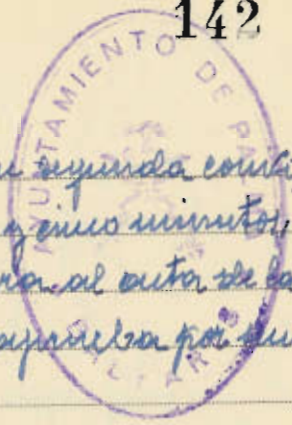 142
AYUNTAMIENTO DE PALMA
segunda
y cinco minutos,
al acta de la
aprueba por